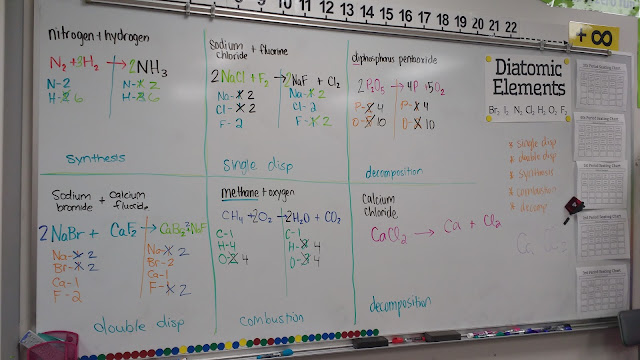 8 9 10 11 12 13 14 15 16 17 18 19 20 21 22
+∞
nitrogen + hydrogen
N₂ + 3H₂ → 2NH₃
N-2
H-2 6
N-1 2
H-3 6
synthesis
sodium chloride + fluorine
2NaCl + F₂ → 2NaF + Cl₂
Na-1 2
Cl-1 2
F-2
Na-1 2
Cl-2
F-1 2
single disp
diphosphorus pentoxide
2P₂O₅ → 4P + 5O₂
P-2 4
O-5 10
P-1 4
O-2 10
decomposition
Diatomic
Elements
Br₂ I₂ N₂ Cl₂ H₂ O₂ F₂
* single disp
* double disp
* synthesis
* combustion
* decomp
Sodium bromide + Calcium fluoride
2NaBr + CaF₂ → CaBr₂ 2NaF
Na-1 2
Br-1 2
Ca-1
F-2
Na-1 2
Br-2
Ca-1
F-1 2
double disp
methane + oxygen
CH₄ + 2O₂ → 2H₂O + CO₂
C-1
H-4
O-2 4
C-1
H-2 4
O-3 4
combustion
calcium
chloride
CaCl₂ → Ca + Cl₂
decomposition